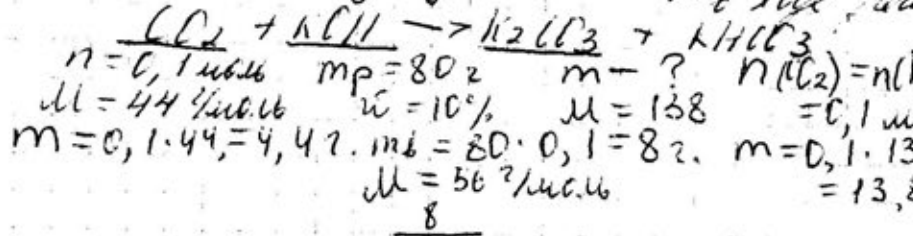 CO2 + KOH → K2CO3 + KHCO3
n = 0,1 моль mр = 80 г m - ? n(CO2) = n(
M = 44 г/моль w = 10% M = 138 = 0,1 м
m = 0,1 · 44, = 4,4 г. mв = 80 · 0,1 = 8 г. m = 0,1 · 13
M = 56 г/моль = 13,8
8